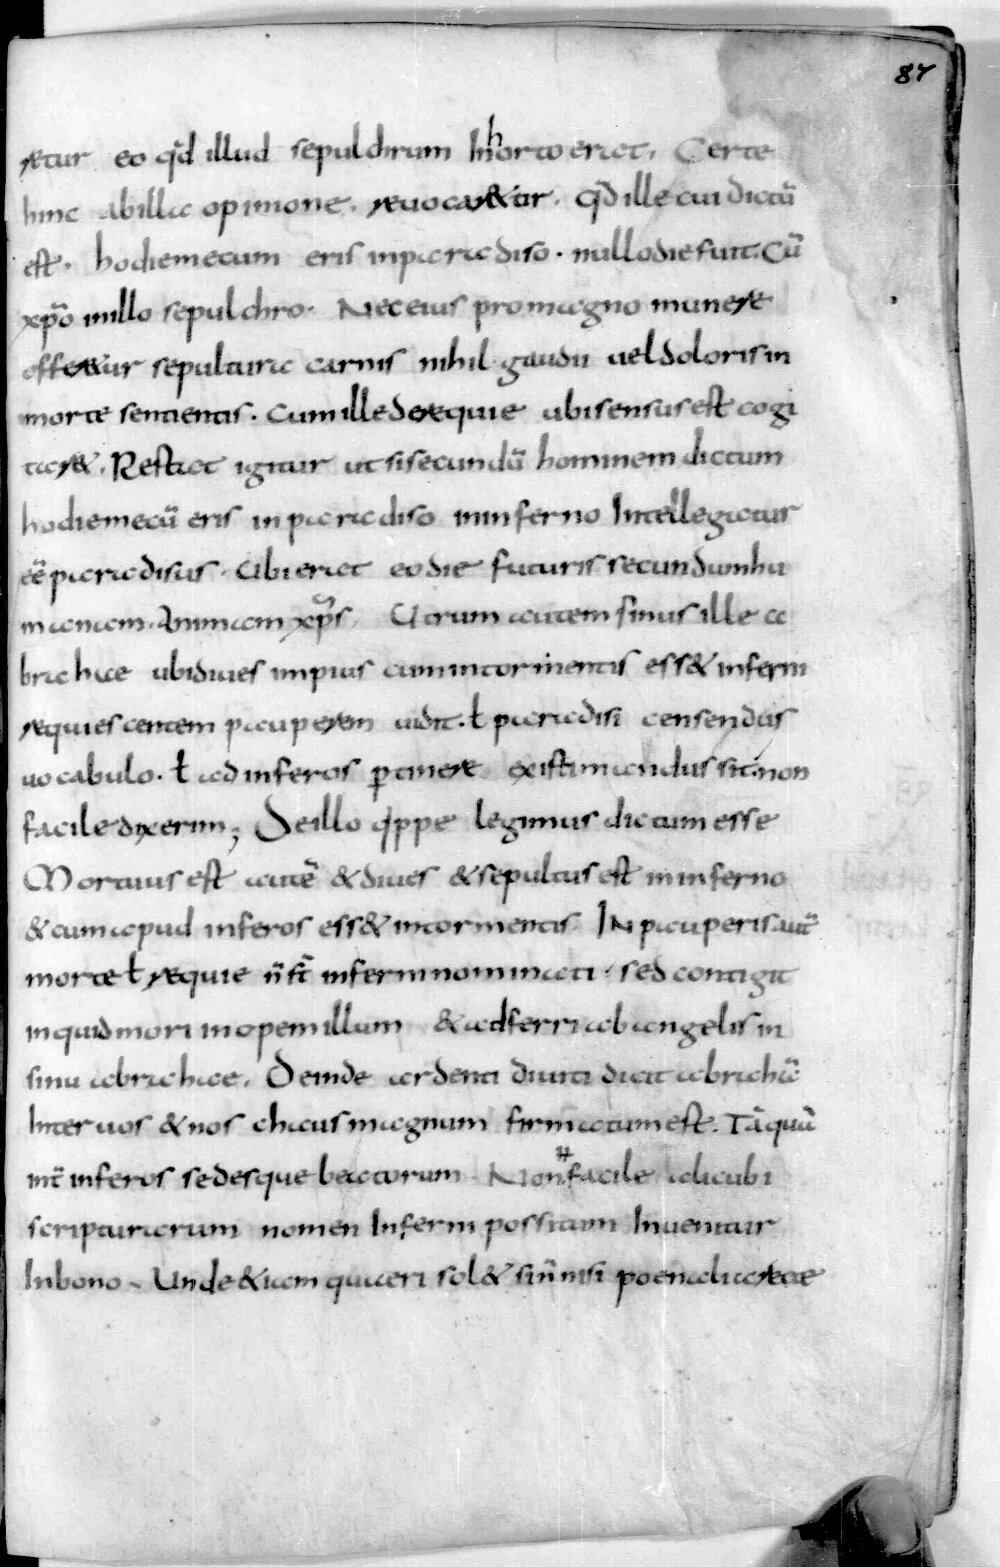 87
retur eo qd̄ illud sepulchrum inhorto erat. Certe
hinc abillac opinione. reuocaretur. qd̄ ille cui dictū
est. hodiemecum eris inparadiso. nullodiefuit. Cū
xp̄o inillo sepulchro. Neceius promagno munere
offeretur sepultura carnis nihil gaudii ueldolorisin
morte sentientis. cumillederequie ubisensusest cogi
taret. Restat igitur utsisecundū hominem dictum
hodiemecū eris inparadiso ininferno Intellegatur
eē paradisus. Ubierat eodie futuris secundumhu
manam. Animam xp̄s. Utrum autem sinus ille a
brahae ubidiues impius cumintormentis esset inferni
requiescentem pauperem uidit. ł paradisi censendus
uocabulo. ł adinferos ꝑtinere existimandus sit. non
facile dixerim; Deillo q̇ppe legimus dictum esse
Mortuus est autē &diues &sepultus est ininferno
&cumapud inferos ess& intormentis. IN pauperisaut̄
morte ł requie n̄ st̄ inferninominati. sed contigit
inquidmori inopemillum &adferri abangelis in
sinu abrahae. Deinde ardenti diuiti dicit abrahā
Inter uos &nos chaus magnum firmatumest. Tāquā
int̄ inferos sedesque beatorum. Non facile alicubi
scripturarum nomen Inferni possitum Inuenitur
Inbono. Unde &iam quaeri sol& sin̄nisi poenaliarecte